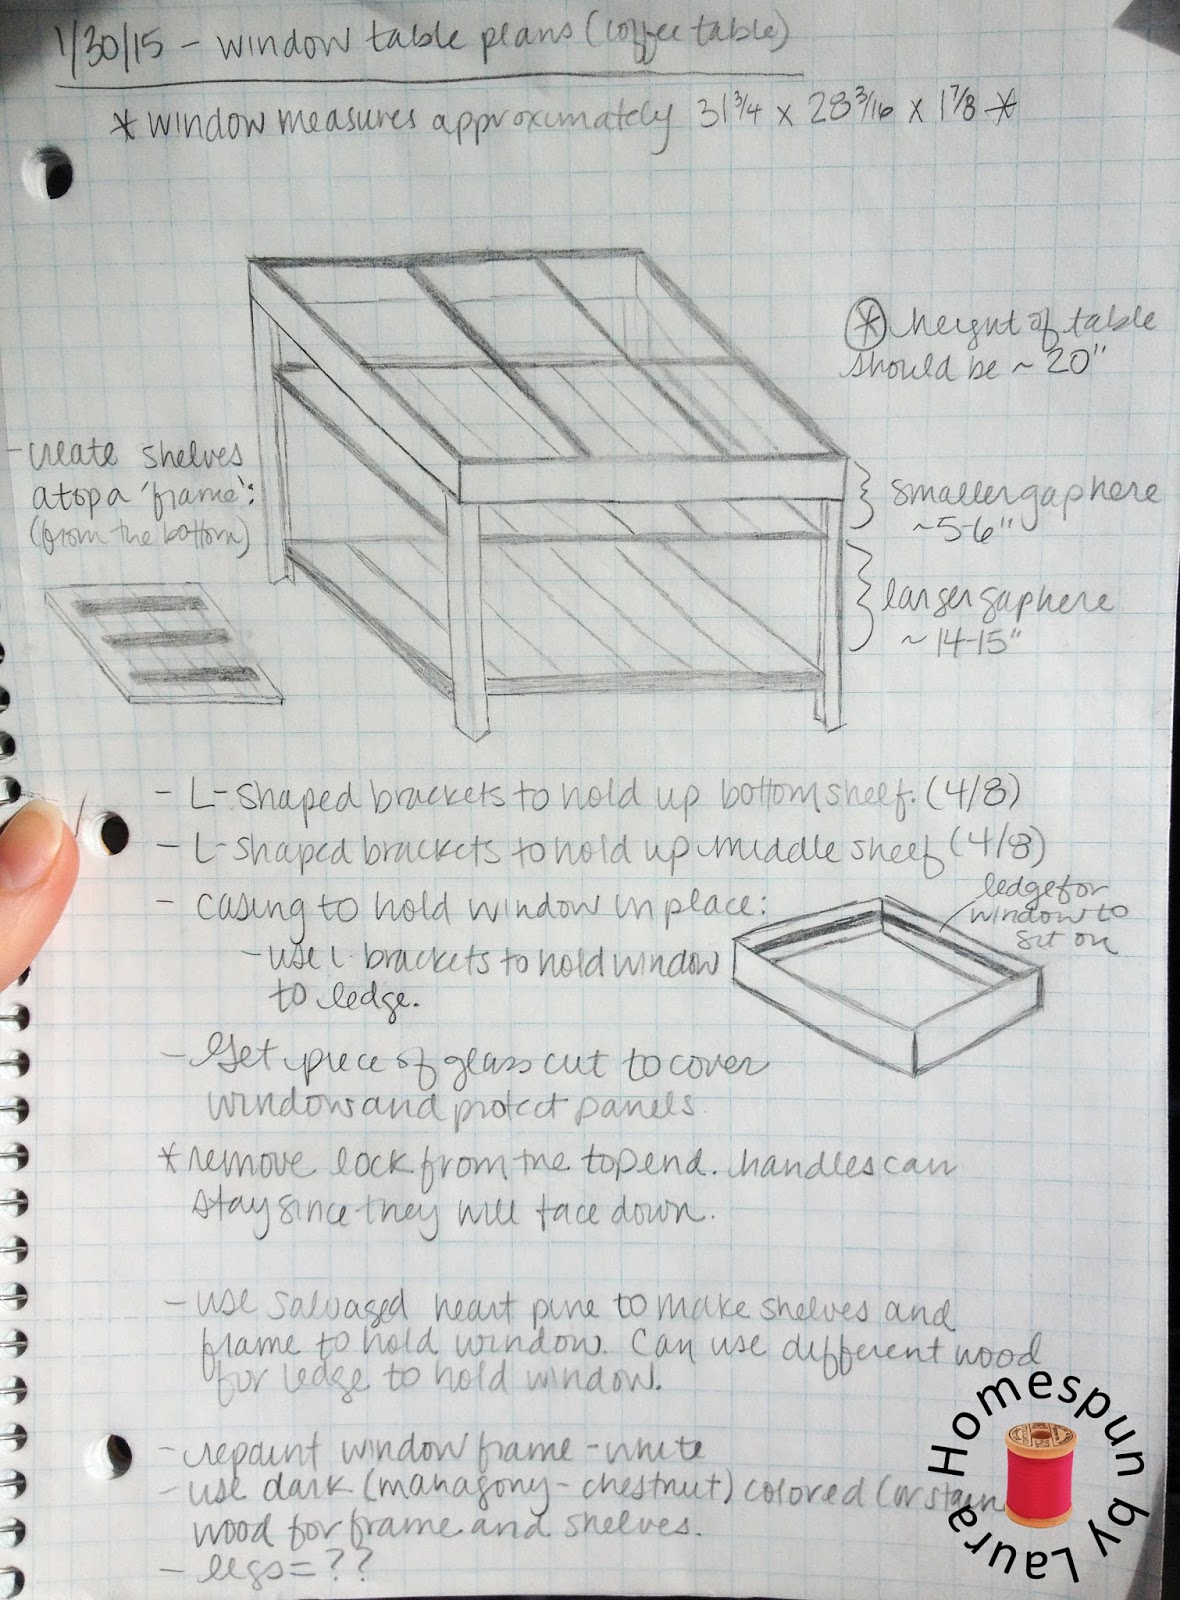 1/30/15 - window table plans (coffee table)
* window measures approximately 31 3/4 x 28 3/16 x 1 7/8 *
* height of table
should be ~ 20"
- create shelves
atop a 'frame':
(from the bottom)
smaller gap here
~5-6"
larger gap here
~ 14-15"
- L-shaped brackets to hold up bottom shelf. (4/8)
- L-shaped brackets to hold up middle shelf (4/8)
- casing to hold window in place:
ledge for
window to
sit on
- use L brackets to hold window
to ledge.
- Get piece of glass cut to cover
window and protect panels.
* remove lock from the top end. handles can
stay since they will face down.
- use salvaged heart pine to make shelves and
frame to hold window. Can use different wood
for ledge to hold window.
- repaint window frame - white
- use dark (mahagony - chestnut) colored (or stain
wood for frame and shelves.
- legs = ??
Homespun by Laura